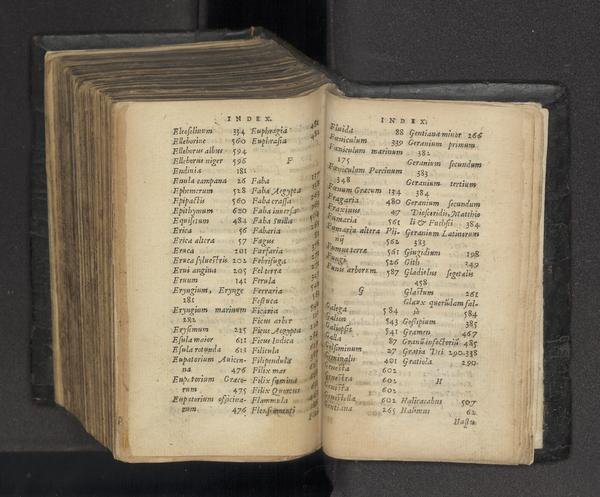 INDEX.
Eleoselinum 334
Elleborine 560
Elleborus albus 594
Elleborus niger 596
Endiuia 181
Enula campana 26
Ephemerum 528
Epipactis 560
Epithymum 620
Equisetum 484
Erica 56
Erica altera 57
Eruca 201
Eruca syluestris 202
Erui angina 205
Eruum 141
Eryngium, Erynge
281
Eryngium marinum
282
Erysimum 225
Esula maior 611
Esula rotunda 613
Eupatorium Auicen-
na 476
Eupatorium Græco-
rum 475
Eupatorium officina-
rum. 476
Euphragia
Euphrasia
F
Faba
Faba Aegypta
Faba crassa
Faba inuersa
Faba suilla
Fabaria
Fagus
Farfaria
Febrifuga
Fel terræ
Ferula
Ferraria
Festuca
Ficaria
Ficus arbor
Ficus Aegypta
Ficus Indica
Filicula
Filipendula
Filix mas
Filix fœmina
Filix Quercus
Flammula
Flos frumenti
INDEX.
Fluida 88
Fœniculum 339
Fœniculum marinum
175
Fœniculum Porcinum
348
Fœnum Græcum 134
Fragaria 480
Fraxinus 47
Fumaria 561
Fumaria altera Pli-
nij 562
Fumus terræ 561
Fungi 526
Funis arborum 587
G
Galega 584
Galion 543
Galiopsis 541
Galla 87
Gelsominum 27
401
Genesta 602
602
602
Genestella 602
Gentiana 265
Gentiana minor 266
Geranium primum
382
Geranium secundum
383
Geranium tertium
384
Geranium secundum
Dioscoridis, Matthio
li & Fuchsii 384
Geranium Latinorum
383
Giugidium 198
Gith 249
Gladiolus segetalis
458
Glastum 261
Glaux querundam fal-
584
Gossipium 385
Gramen 467
Granū infectoriū 485
Gratia Dei 290.338
Gratiola 290
H
Halicacabus 507
Halimus 62
Hastu